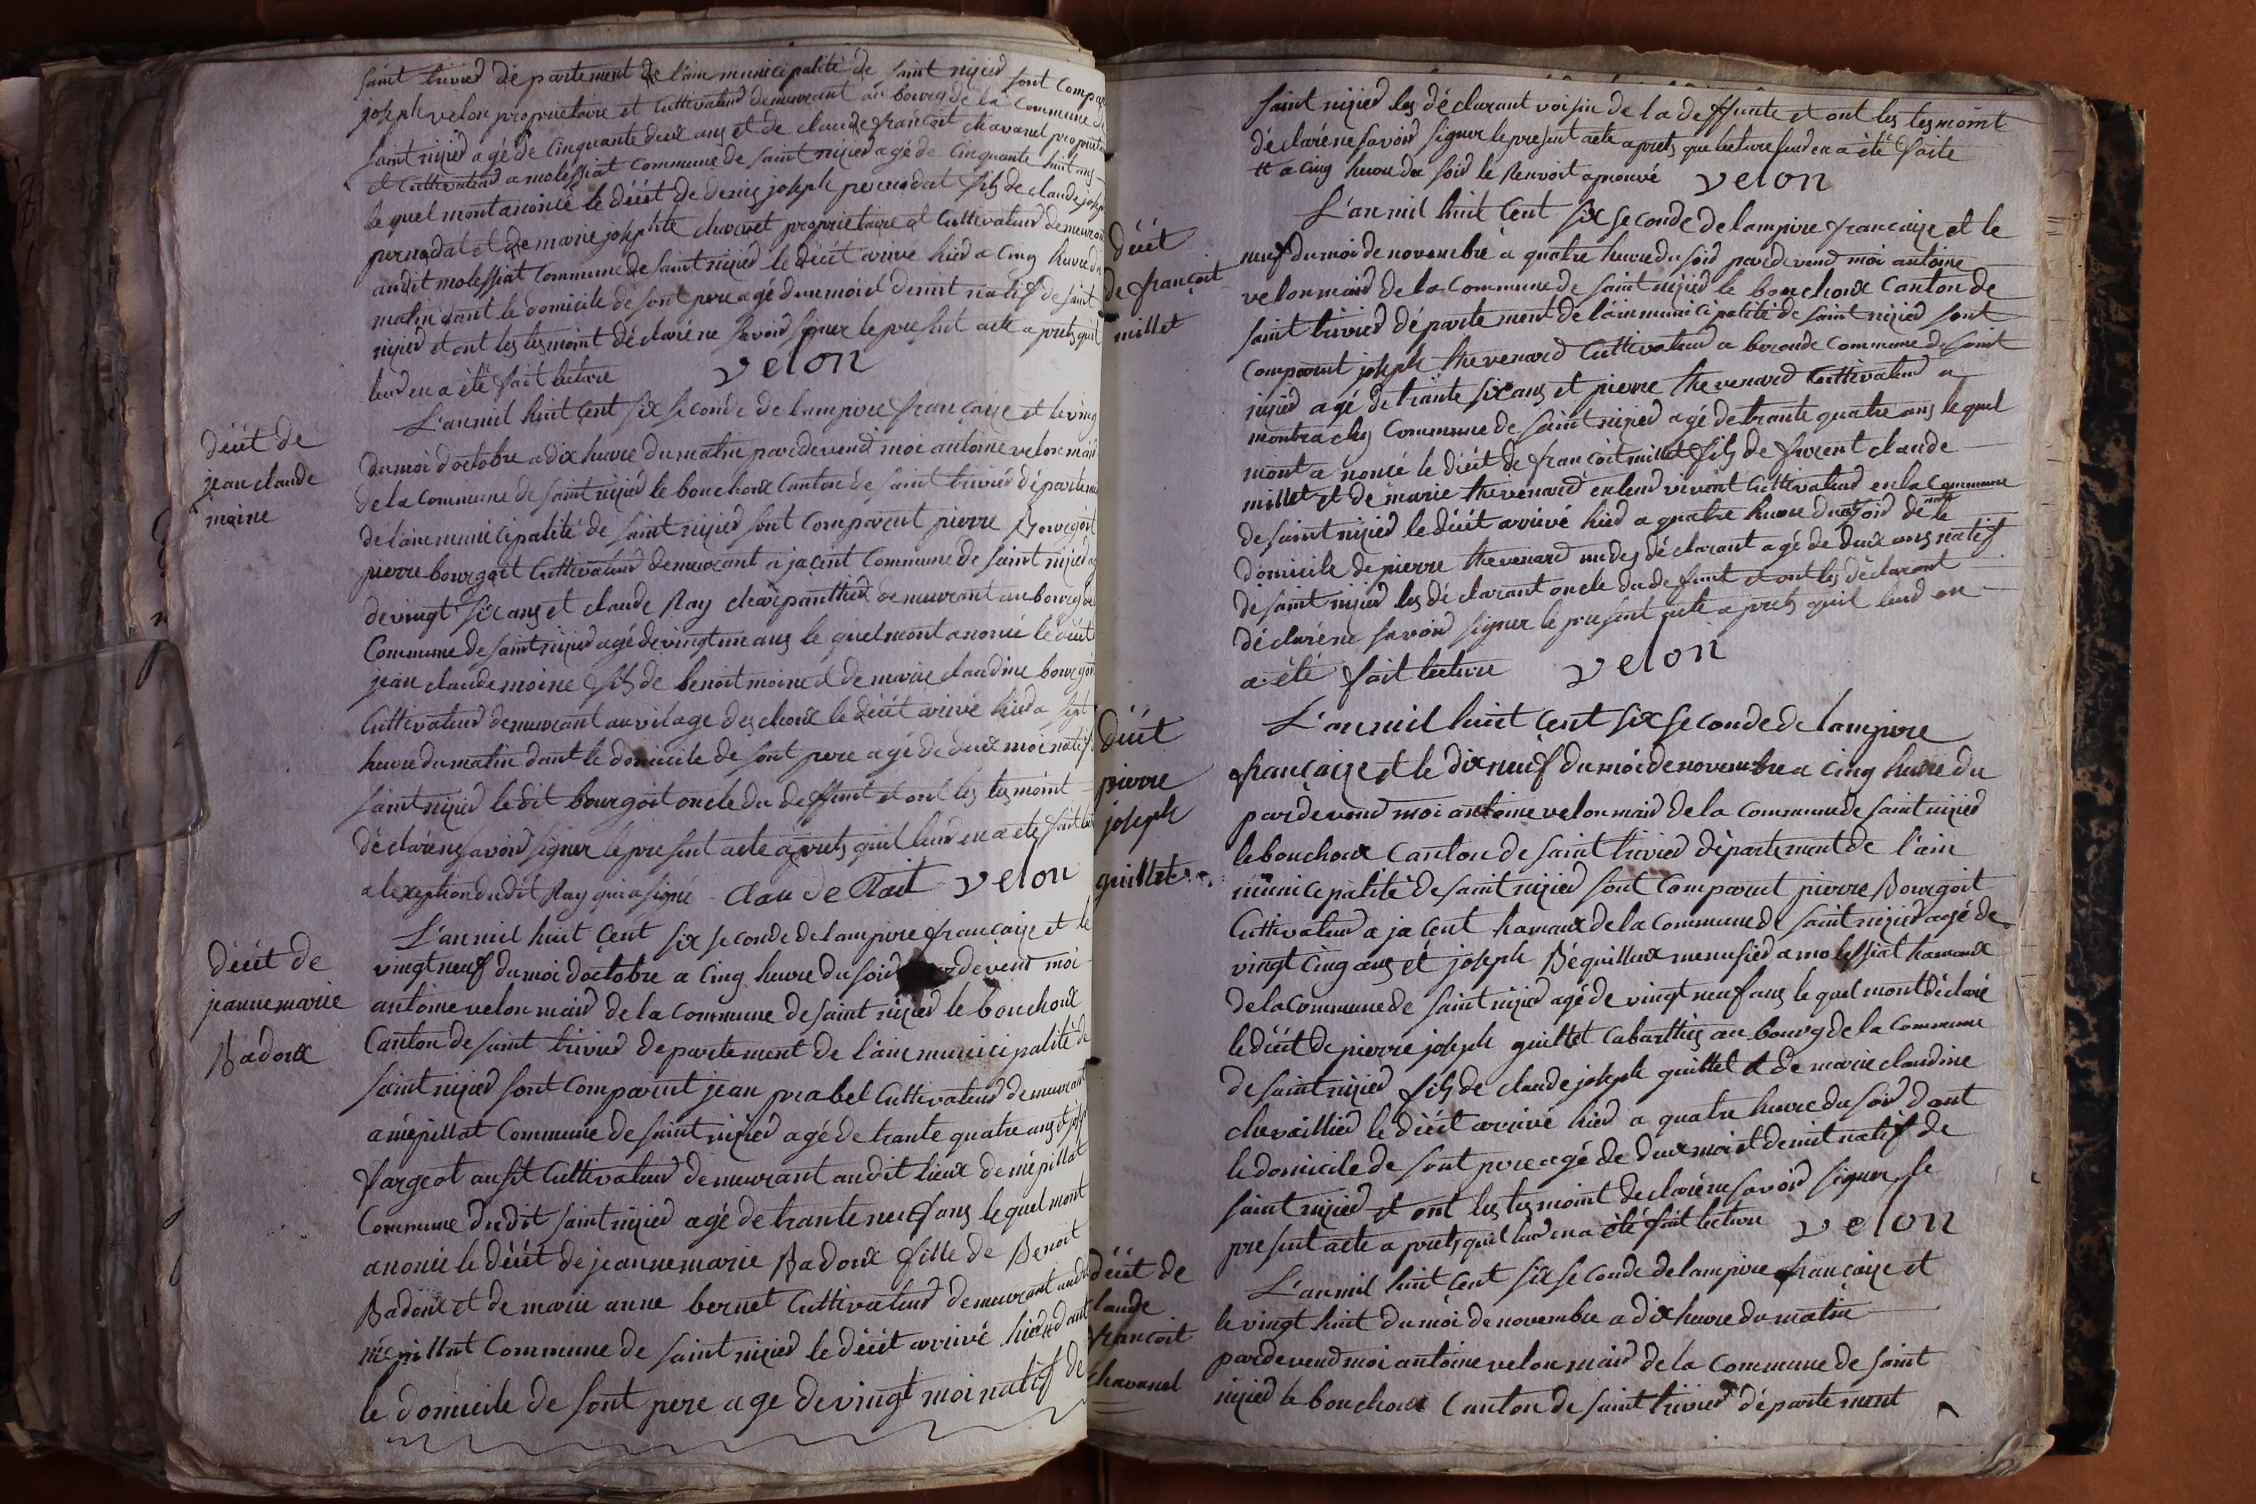 saint trivied departement de l'ain municipalité de saint nizied sont compar
joseph velon proprietaire et Cultivateud demeurant au bourg de la Commune de
saint nizied agé de Cinquante deux ans et de claude françoit chavanel propriétai
et Cultivateud a molessiat Commune de saint nizied agé de Cinquante huit ans
le quel mont anoncé le décét de denis joseph pernodat fils de claude josep
pernodat et de marie josephte charvet proprietaire et Cultivateud demeurant
audit molessiat Commune de saint nizied le décét arivé hied a Cinq heure du
matin dant le domicile de sont pere agé dun moi et demit natif de saint
nizied et ont les tesmoint déclaré ne savoid signer le present acte a prets quil
leud en a été fait lecture velon
décét de
jean claude
moine
L'an mil huit Cent six seconde de lampire française et le vingt
du moi doctobre a dix heure du matin pardevend moi antoine velon maid
de la Commune de saint nizied le bouchoux Canton de saint trivied départeme
de l'ain municipalité de saint nizied sont Comparent pierre Bourgoit
pierre bourgoit Cultivateud demeurant a jacent Commune de saint nizied
de vingt six ans et claude Ray charpanthied demeurant au bourg de
Commune de saint nizied agé de vingt un ans le quel mont anoncé le décét
jean claude moine fils de benoit moine et de marie claudine bourgoi
Cultivateud demeurant au vilage des choux le décét arivé hied a sept
heure du matin dant le domicile de sont pere agé de deux moi natif
saint nizied le dit bourgoit oncle du deffunt et ont les tesmoint
déclaré ne savoid signer le present acte a prets quil leud en a été fait lec
a lexeption dudit Ray qui a signé Claude Rait velon
décét de
jeanne marie
Badoux
L'an mil huit Cent six seconde de lampire française et le
vingt neuf du moi doctobre a Cinq heure du soid pardevend moi
antoine velon maid de la Commune de saint nizied le bouchoux
Canton de saint trivied departement de l'ain municipalité de
saint nizied sont Comparent jean prabel Cultivateud demeurant
a mépillat Commune de saint nizied agé de trante quatre ans et josep
fargeot ausit Cultivateud demeurant audit lieux de mépillat
Commune dudit saint nizied agé de trante neuf ans le quel mont
anoncé le décét de jeanne marie Badoux fille de Benoit
Badoux et de marie anne bernet Cultivateud demeurant audit
mépillat Commune de saint nizied le décét arrivé hied dant
le domicile de sont pere age de vingt moi natif de
saint nizied les déclarant voisin de la deffunte et ont les tesmoint
déclaré ne savoid signer le present acte a prets que lecture leud en a été faite
et a Cinq heure du soid le Renvoit aprouvé velon
décét
de françoit
millet
L'an mil huit Cent six seconde de lampire française et le
neuf du moi de novembre a quatre heure du soid pardevend moi antoine
velon maid de la Commune de saint nizied le bouchoux Canton de
saint trivied département de l'ain municipalité de saint nizied sont
Comparent joseph thevenard Cultivateud a beronde Commune de saint
nizied agé de trante six ans et pierre thevenard Cultivateud a
montrachy Commune de saint nizied agé de trante quatre ans le quel
mont a noncé le décét de françoit millet fils de furent claude
millet et de marie thevenard en leud vivant Cultivateud en la Commune
de saint nizied le décét arrivé hied a quatre heure du soid dent le
domicile de pierre thevenard un des déclarant agé de deux ans natif
de saint nizied les déclarant oncle du deffunt et ont les déclarent
déclaré ne savoid signer le present acte a prets quil leud en
a été fait lecture velon
décét
pierre
joseph
guillet
L'an mil huit Cent six seconde de lampire
française et le dix neuf du moi de novembre a Cinq heure du
pardevend moi antoine velon maid de la Commune de saint nizied
le bouchoux Canton de saint trivied département de l'ain
municipalité de saint nizied sont Comparent pierre Bourgoit
Cultivateud a jacent hamaux de la Commune de saint nizied agé de
vingt Cinq ans et joseph Béguilleux menusied a molessiat hamaux
de la Commune de saint nizied agé de vingt neuf ans le quel mont déclaré
le décét de pierre joseph guillet Cabarthis au bourg de la Commune
de saint nizied fils de claude joseph guillet et de marie claudine
chevaillied le décét arrivé hied a quatre heure du soid dant
le domicile de sont pere agé de deux moi et demit natif de
saint nizied et ont les tesmoint declaré ne savoid signer le
present acte a prets quil leud en a été fait lecture velon
décét de
claude
françoit
chavanel
L'an mil huit Cent six seconde de lampire française et
le vingt huit du moi de novembre a dix heure du matin
pardevend moi antoine velon maid de la Commune de saint
nizied le bouchoux Canton de saint trivied département